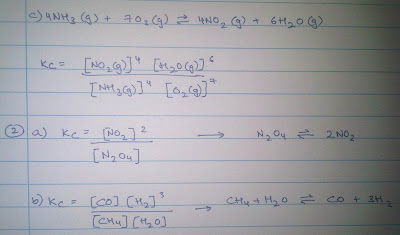 c) 4NH₃(g) + 7O₂(g) ⇌ 4NO₂(g) + 6H₂O(g)
Kc = [NO₂(g)]⁴ [H₂O(g)]⁶ / [NH₃(g)]⁴ [O₂(g)]⁷
② a) Kc = [NO₂]² / [N₂O₄] → N₂O₄ ⇌ 2NO₂
b) Kc = [CO] [H₂]³ / [CH₄] [H₂O] → CH₄ + H₂O ⇌ CO + 3H₂